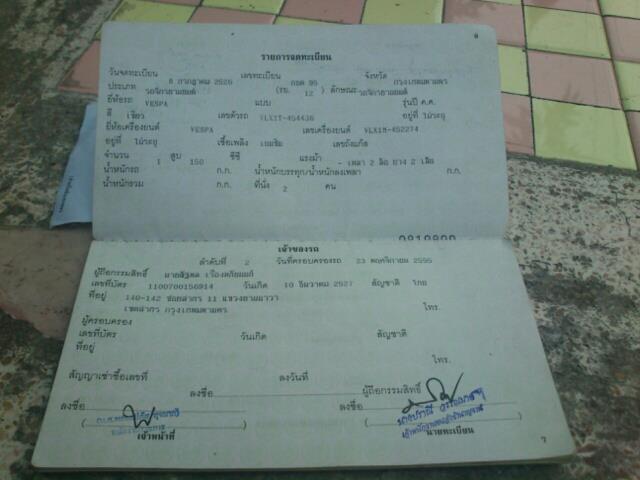 6
รายการจดทะเบียน
วันจดทะเบียน 8 กรกฎาคม 2526 เลขทะเบียน กอด 95 จังหวัด กรุงเทพมหานคร
ประเภท รถจักรยานยนต์ (รย. 12 ) ลักษณะ รถจักรยานยนต์
ยี่ห้อรถ VESPA แบบ รุ่นปี ค.ศ.
สี เขียว เลขตัวรถ VLX1T-454436 อยู่ที่ ไม่ระบุ
ยี่ห้อเครื่องยนต์ VESPA เลขเครื่องยนต์ VLX1M-452274
อยู่ที่ ไม่ระบุ เชื้อเพลิง เบนซิน เลขถังแก๊ส
จำนวน 1 สูบ 150 ซีซี แรงม้า - เพลา 2 ล้อ ยาง 2 เส้น
น้ำหนักรถ ก.ก. น้ำหนักบรรทุก/น้ำหนักลงเพลา ก.ก.
น้ำหนักรวม ก.ก. ที่นั่ง 2 คน
เจ้าของรถ
ลำดับที่ 2 วันที่ครอบครองรถ 23 พฤศจิกายน 2555
ผู้ถือกรรมสิทธิ์
เลขที่บัตร 1100700156914 วันเกิด 10 ธันวาคม 2527 สัญชาติ ไทย
ที่อยู่ 140-142 ซอยสาทร 11 แขวงยานนาวา
เขตสาทร กรุงเทพมหานคร โทร.
ผู้ครอบครอง
เลขที่บัตร วันเกิด สัญชาติ
ที่อยู่
โทร.
สัญญาเช่าซื้อเลขที่ ลงวันที่
ลงชื่อ ผู้ถือกรรมสิทธิ์
ลงชื่อ ลงชื่อ
เจ้าหน้าที่ นายทะเบียน
7